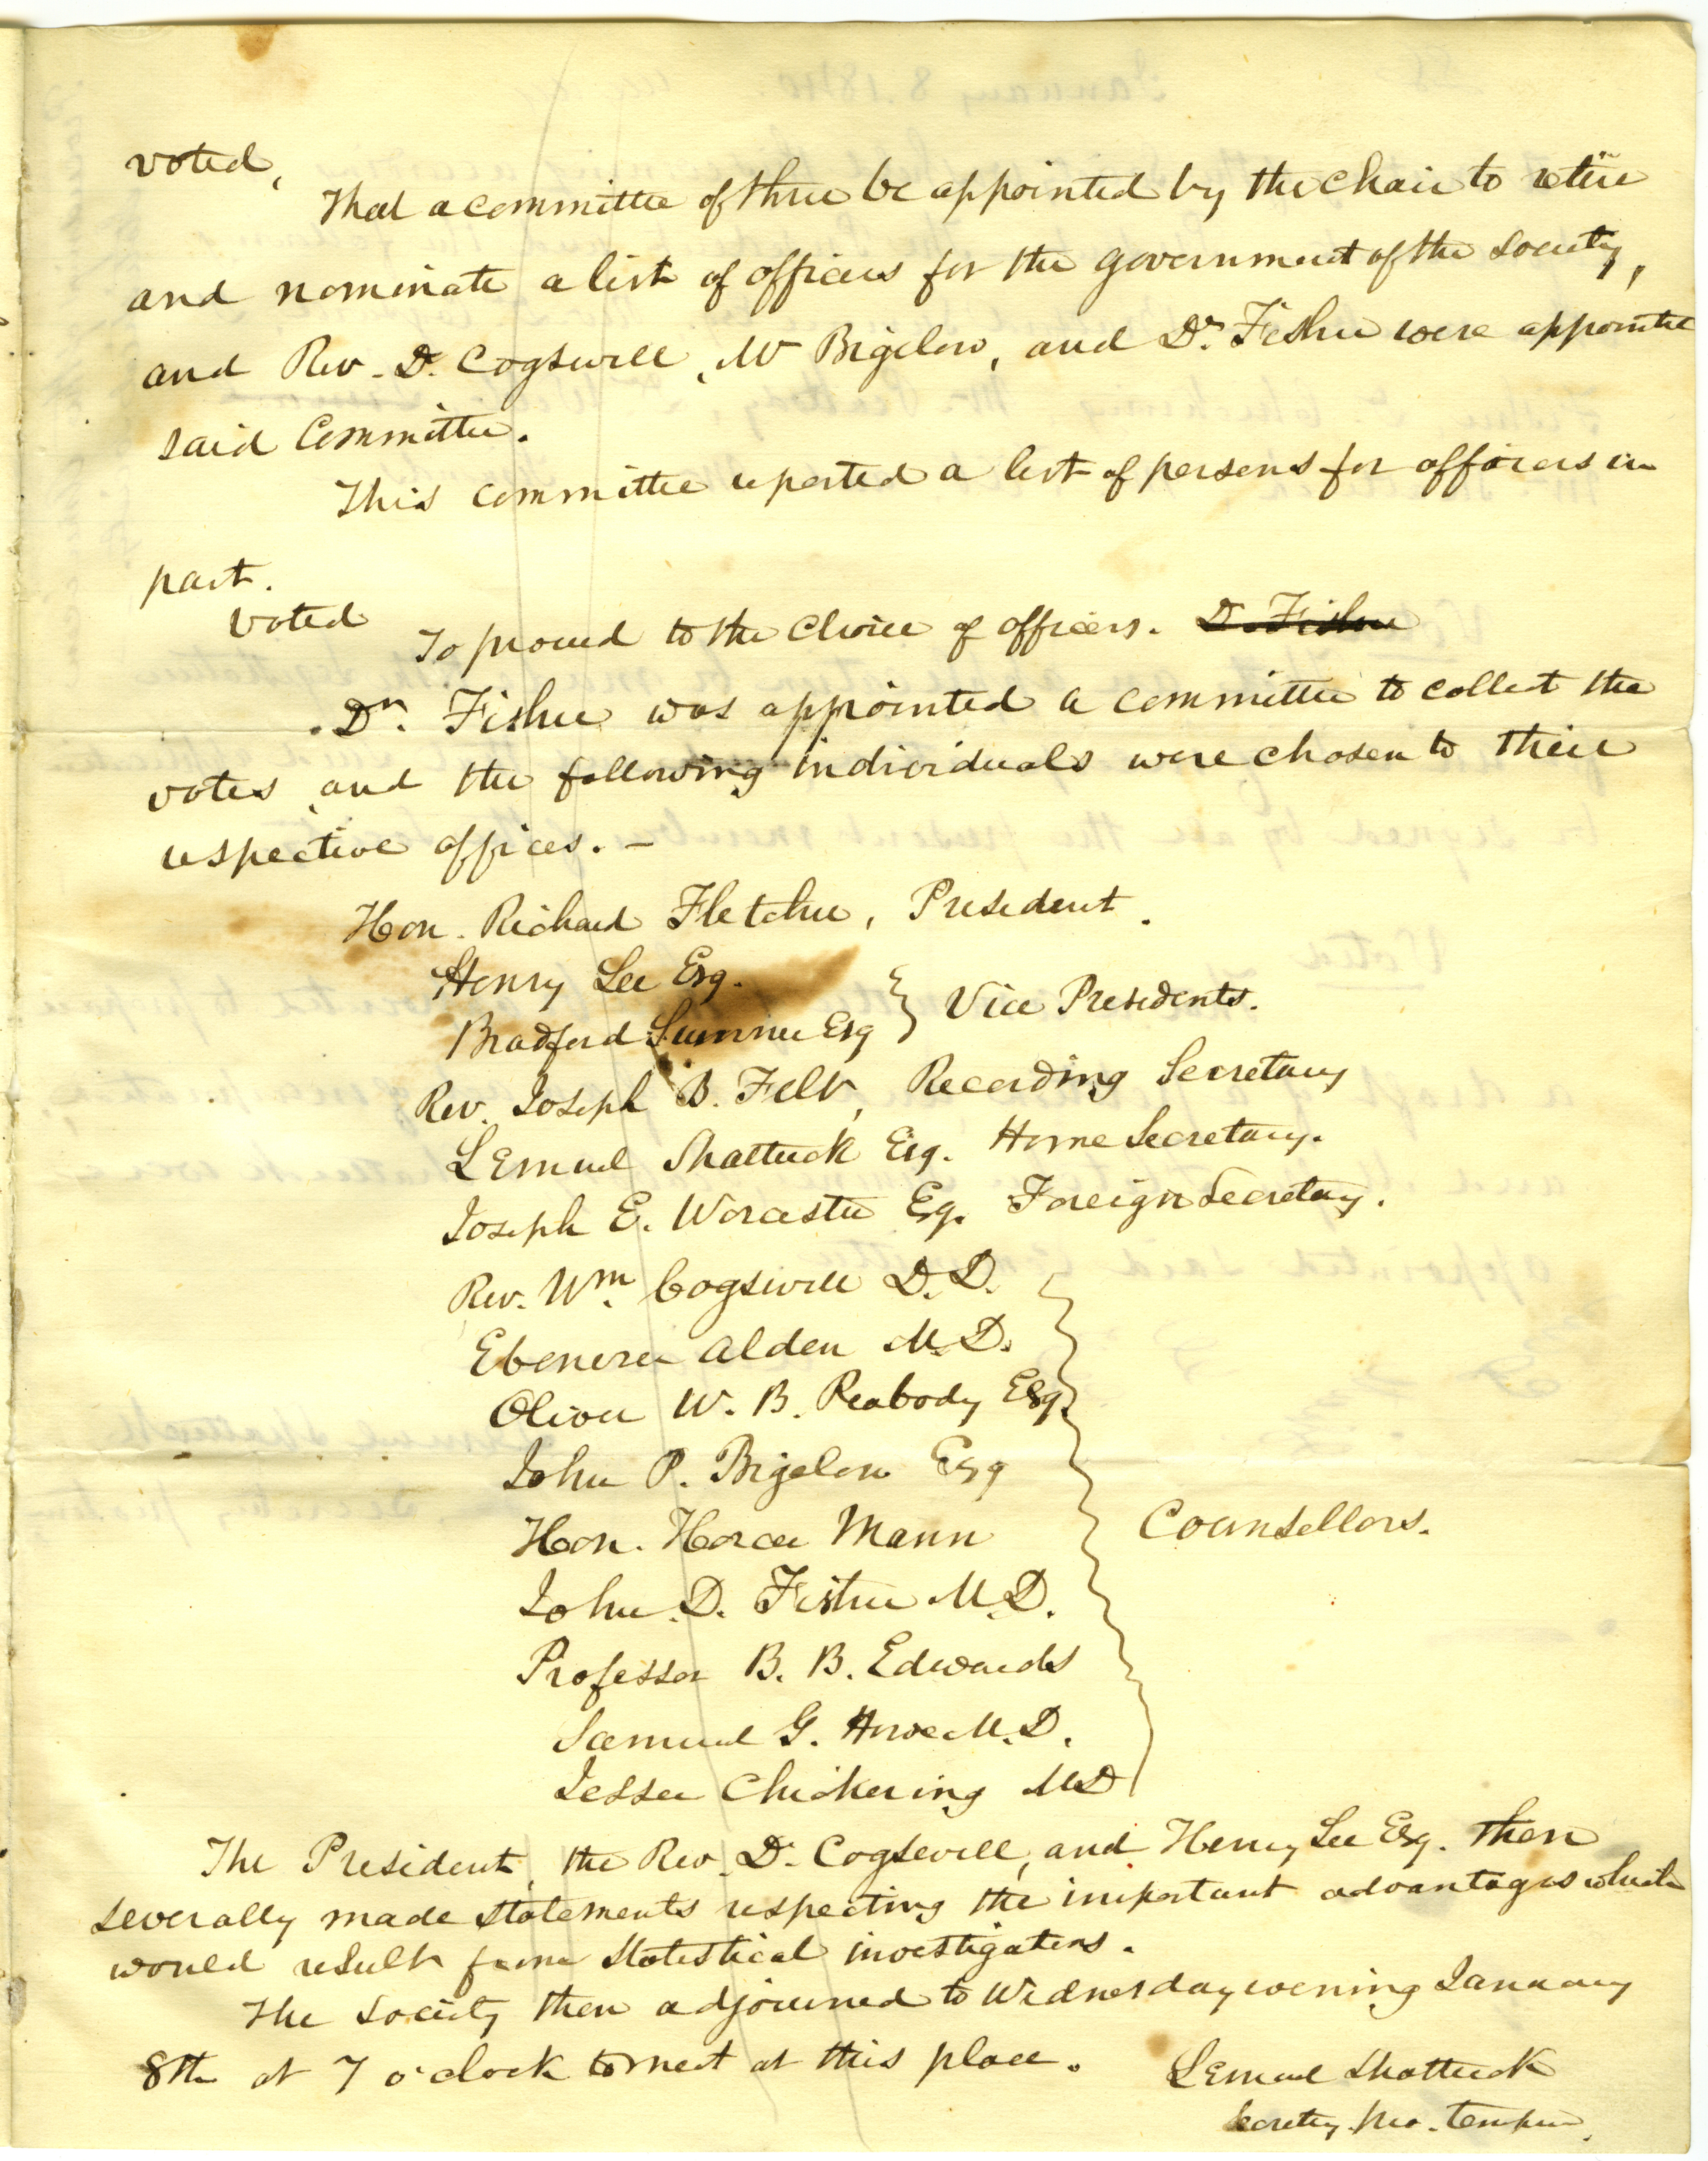 voted,
That a committee of three be appointed by the chair to retire
and nominate a list of officers for the government of the Society,
and Rev. D. Cogswell, Mr Bigelow, and Dr. Fisher were appointed
said Committee.
This committee reported a list of persons for officers in
part.
Voted
To proceed to the choice of officers. D. Fisher
Dr. Fisher was appointed a committee to collect the
votes and the following individuals were chosen to their
respective offices. –
Hon. Richard Fletcher, President.
Henry Lee Esq.
Bradford Sumner Esq } Vice Presidents.
Rev. Joseph B. Felt, Recording Secretary
Lemuel Shattuck Esq. Home Secretary.
Joseph E. Worcester Esq. Foreign Secretary.
Rev. Wm. Cogswell D.D.
Ebenezer Alden M.D.
Oliver W. B. Peabody Esq.
John P. Bigelow Esq
Hon. Horace Mann } Counsellors.
John D. Fisher M.D.
Professor B. B. Edwards
Samuel G. Howe M.D.
Jesse Chickering MD
The President, the Rev. D. Cogswell, and Henry Lee Esq. then
severally made statements respecting the important advantages which
would result from statistical investigations.
The Society then adjourned to Wednesday evening January
8th at 7 o'clock to meet at this place.
Lemuel Shattuck
Secretary pro. tempore.